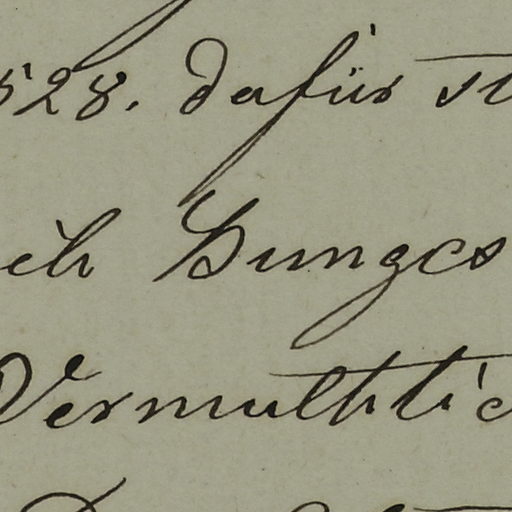 528. dafür st
ich Hunges
Vermuthlic